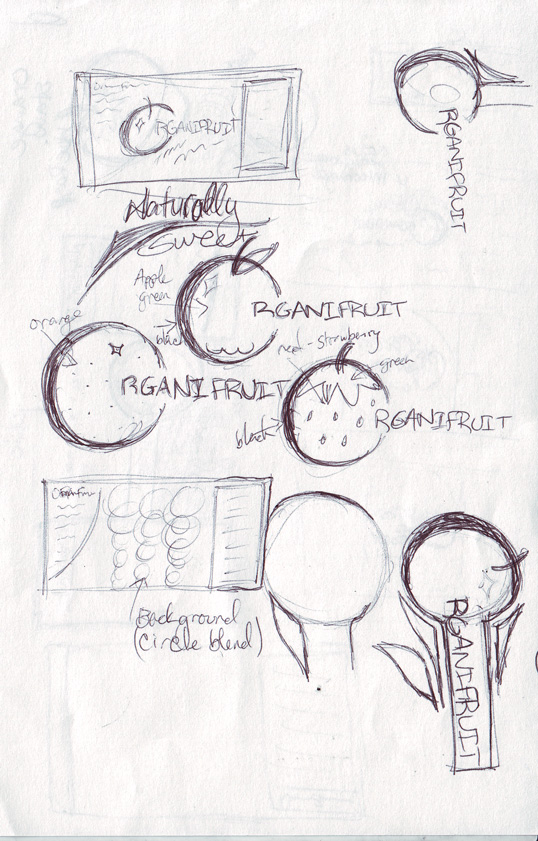 RGANIFRUIT
RGANIFRUIT
Naturally
Sweet
Apple
green
RGANIFRUIT
black
orange
RGANIFRUIT
red - strawberry
green
RGANIFRUIT
black
Background
(Circle blend)
RGANIFRUIT